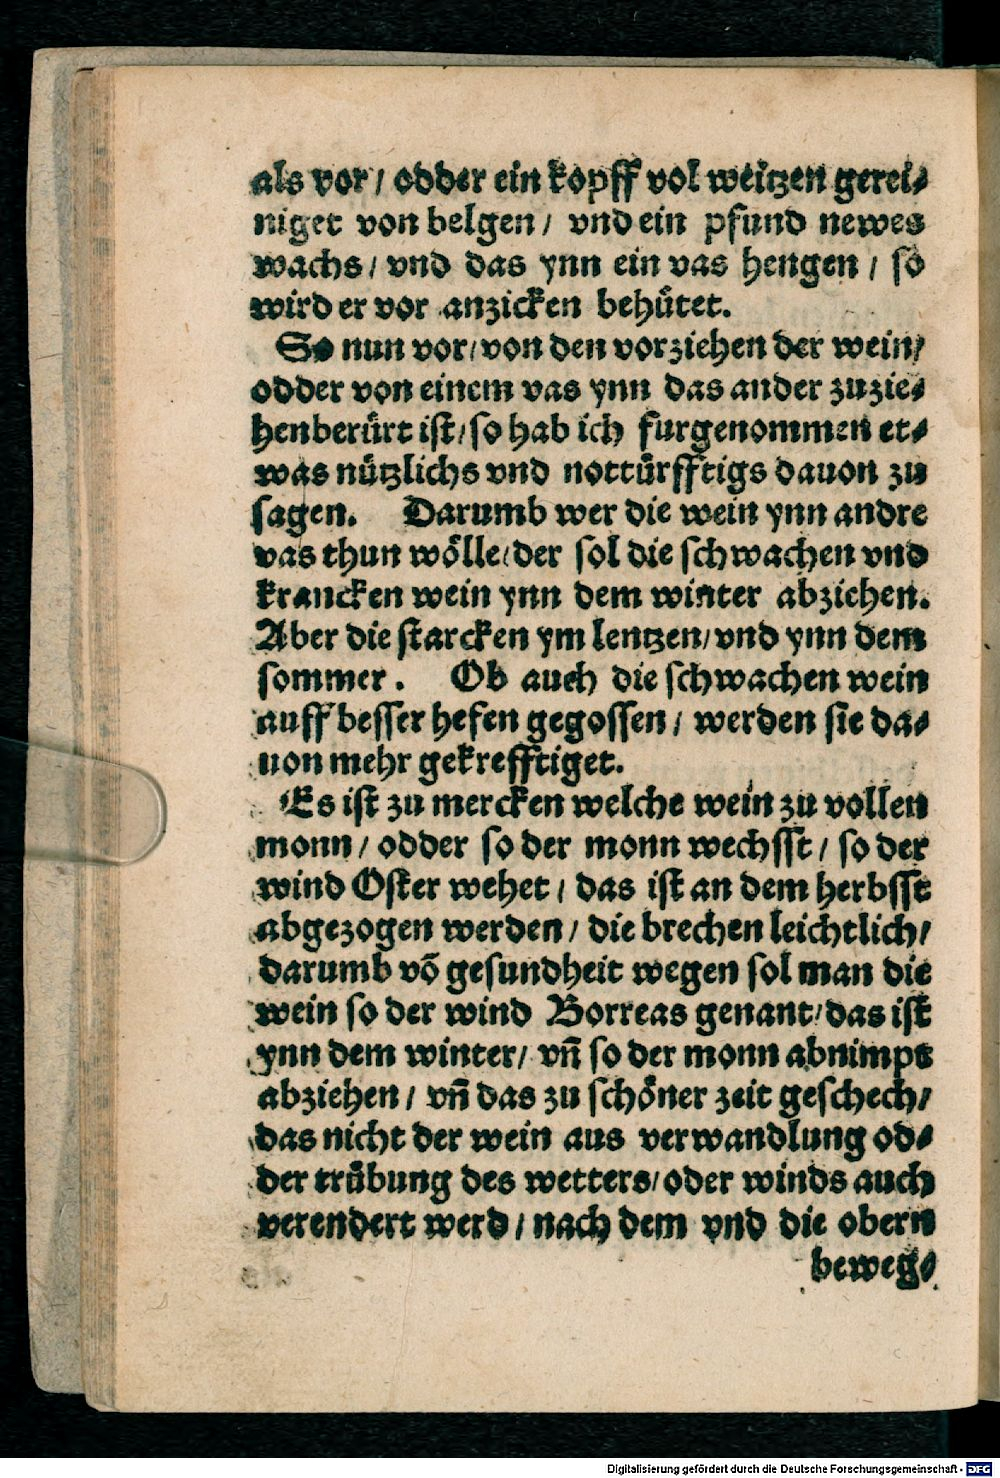 als vor / odder ein kopff vol weitzen gerei⸗
niget von belgen / vnd ein pfund newes
wachs / vnd das ynn ein vas hengen / so
wird er vor anzicken behütet.
So nun vor / von den vorziehen der wein /
odder von einem vas ynn das ander zuzie⸗
hen berürt ist / so hab ich furgenommen et⸗
was nützlichs vnd nottürfftigs dauon zu
sagen. Darumb wer die wein ynn andre
vas thun wölle / der sol die schwachen vnd
krancken wein ynn dem winter abziehen.
Aber die starcken ym lentzen / vnd ynn dem
sommer. Ob auch die schwachen wein
auff besser hefen gegossen / werden sie da⸗
uon mehr gekrefftiget.
Es ist zu mercken welche wein zu vollen
monn / odder so der monn wechsst / so der
wind Oster wehet / das ist an dem herbsst
abgezogen werden / die brechen leichtlich /
darumb võ gesundheit wegen sol man die
wein so der wind Borreas genant / das ist
ynn dem winter / vñ so der monn abnimpt
abziehen / vñ das zu schöner zeit geschech /
das nicht der wein aus verwandlung od⸗
der trübung des wetters / oder winds auch
verendert werd / nach dem vnd die obern
beweg⸗
Digitalisierung gefördert durch die Deutsche Forschungsgemeinschaft - DFG